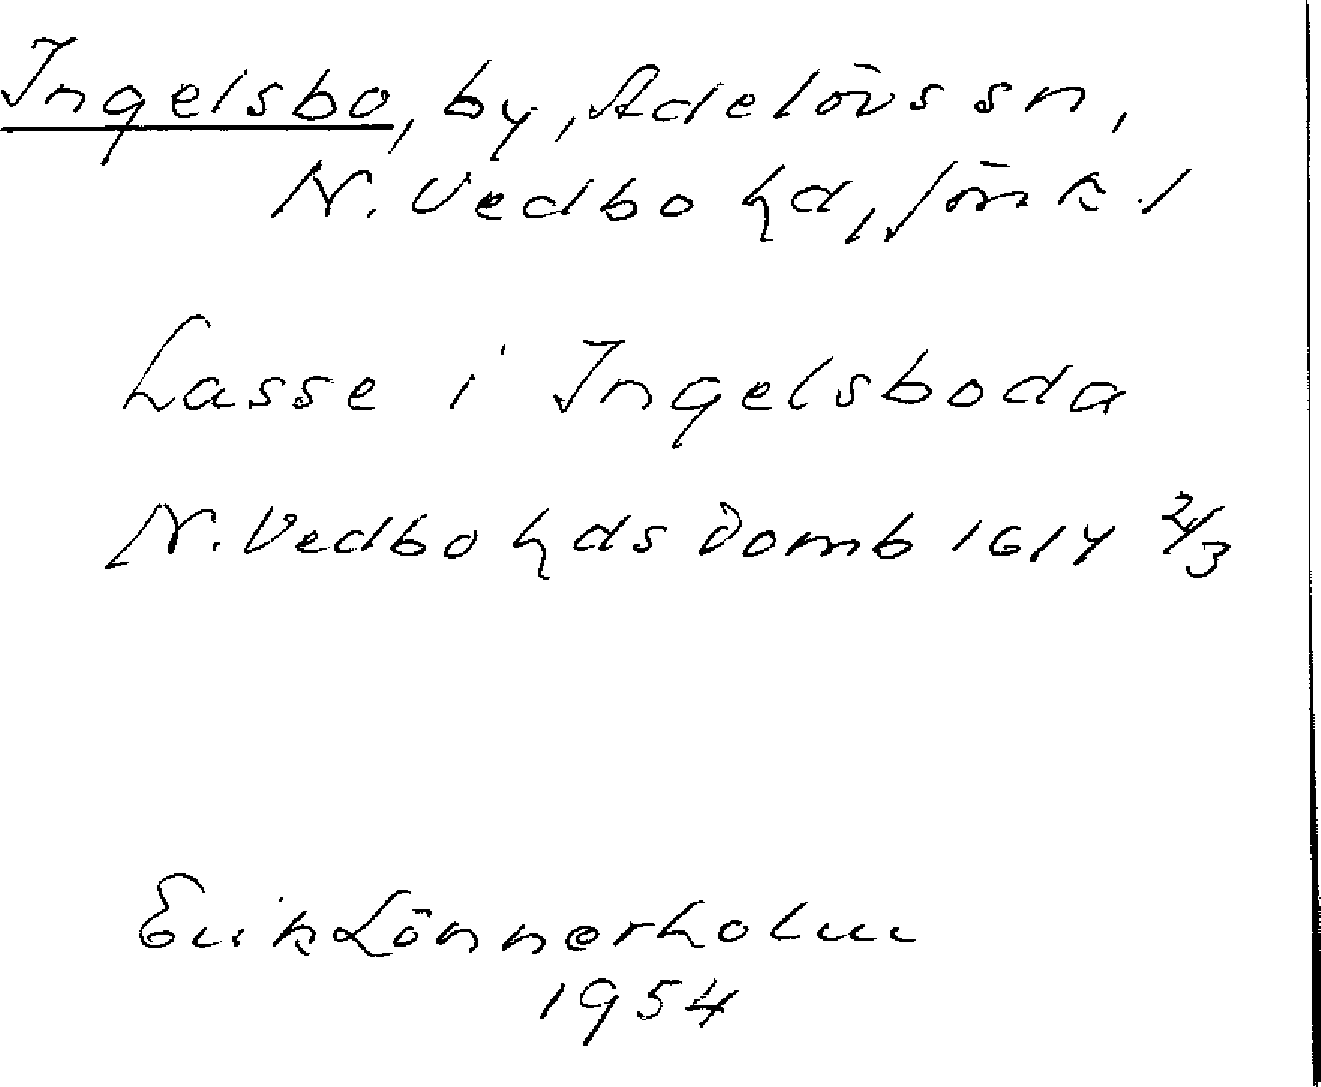 Ingelsbo, by, Adelövs sn,
N. Vedbo hd, Jönk. l
Lasse i Ingelsboda
N. Vedbo hds domb 1614 2/3
Erik Lönnerholm
1954